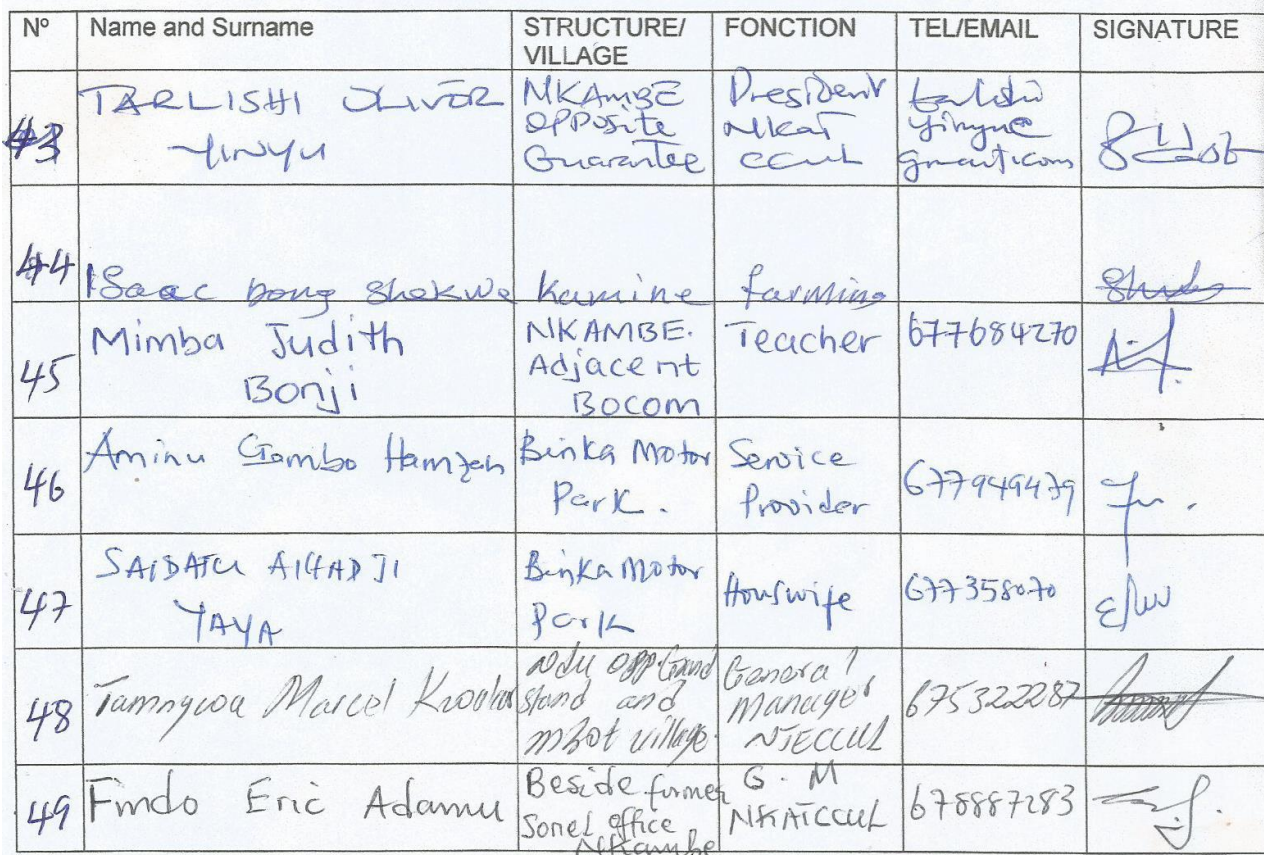 Nº Name and Surname STRUCTURE/ VILLAGE FONCTION TEL/EMAIL SIGNATURE
43 TARLISHI OLIVER YINYU NKAMBE Opposite Guarantee President NKAT CCUL
44 Isaac bong Shekwe Kamine farming
45 Mimba Judith Bonji NKAMBE. Adjacent BOCOM Teacher 677684270
46 Aminu Gambo Hamzah Binka Motor Park. Service Provider 677949479
47 SAIDATU AlHADJI YAYA Binka Motor Park Houswife 677358070
48 Marcel Ndu opp. Grand stand and mbot village. General Manager NJECCUL 675322287
49 Findo Eric Adamu Beside former Sonel office Nkambe G. M NKATCCUL 678887283